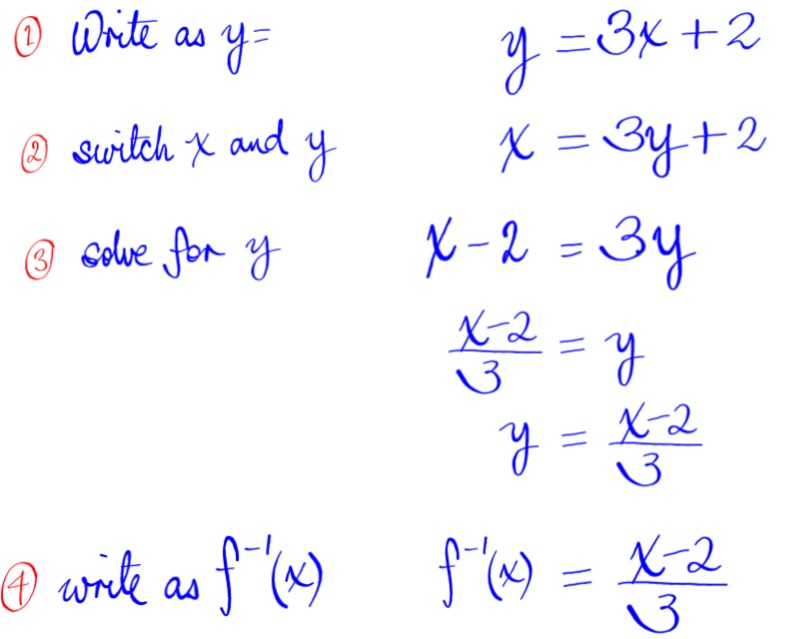 ① Write as y= y = 3x + 2
② switch x and y x = 3y + 2
③ solve for y x - 2 = 3y
x-2/3 = y
y = x-2/3
④ write as f⁻¹(x) f⁻¹(x) = x-2/3